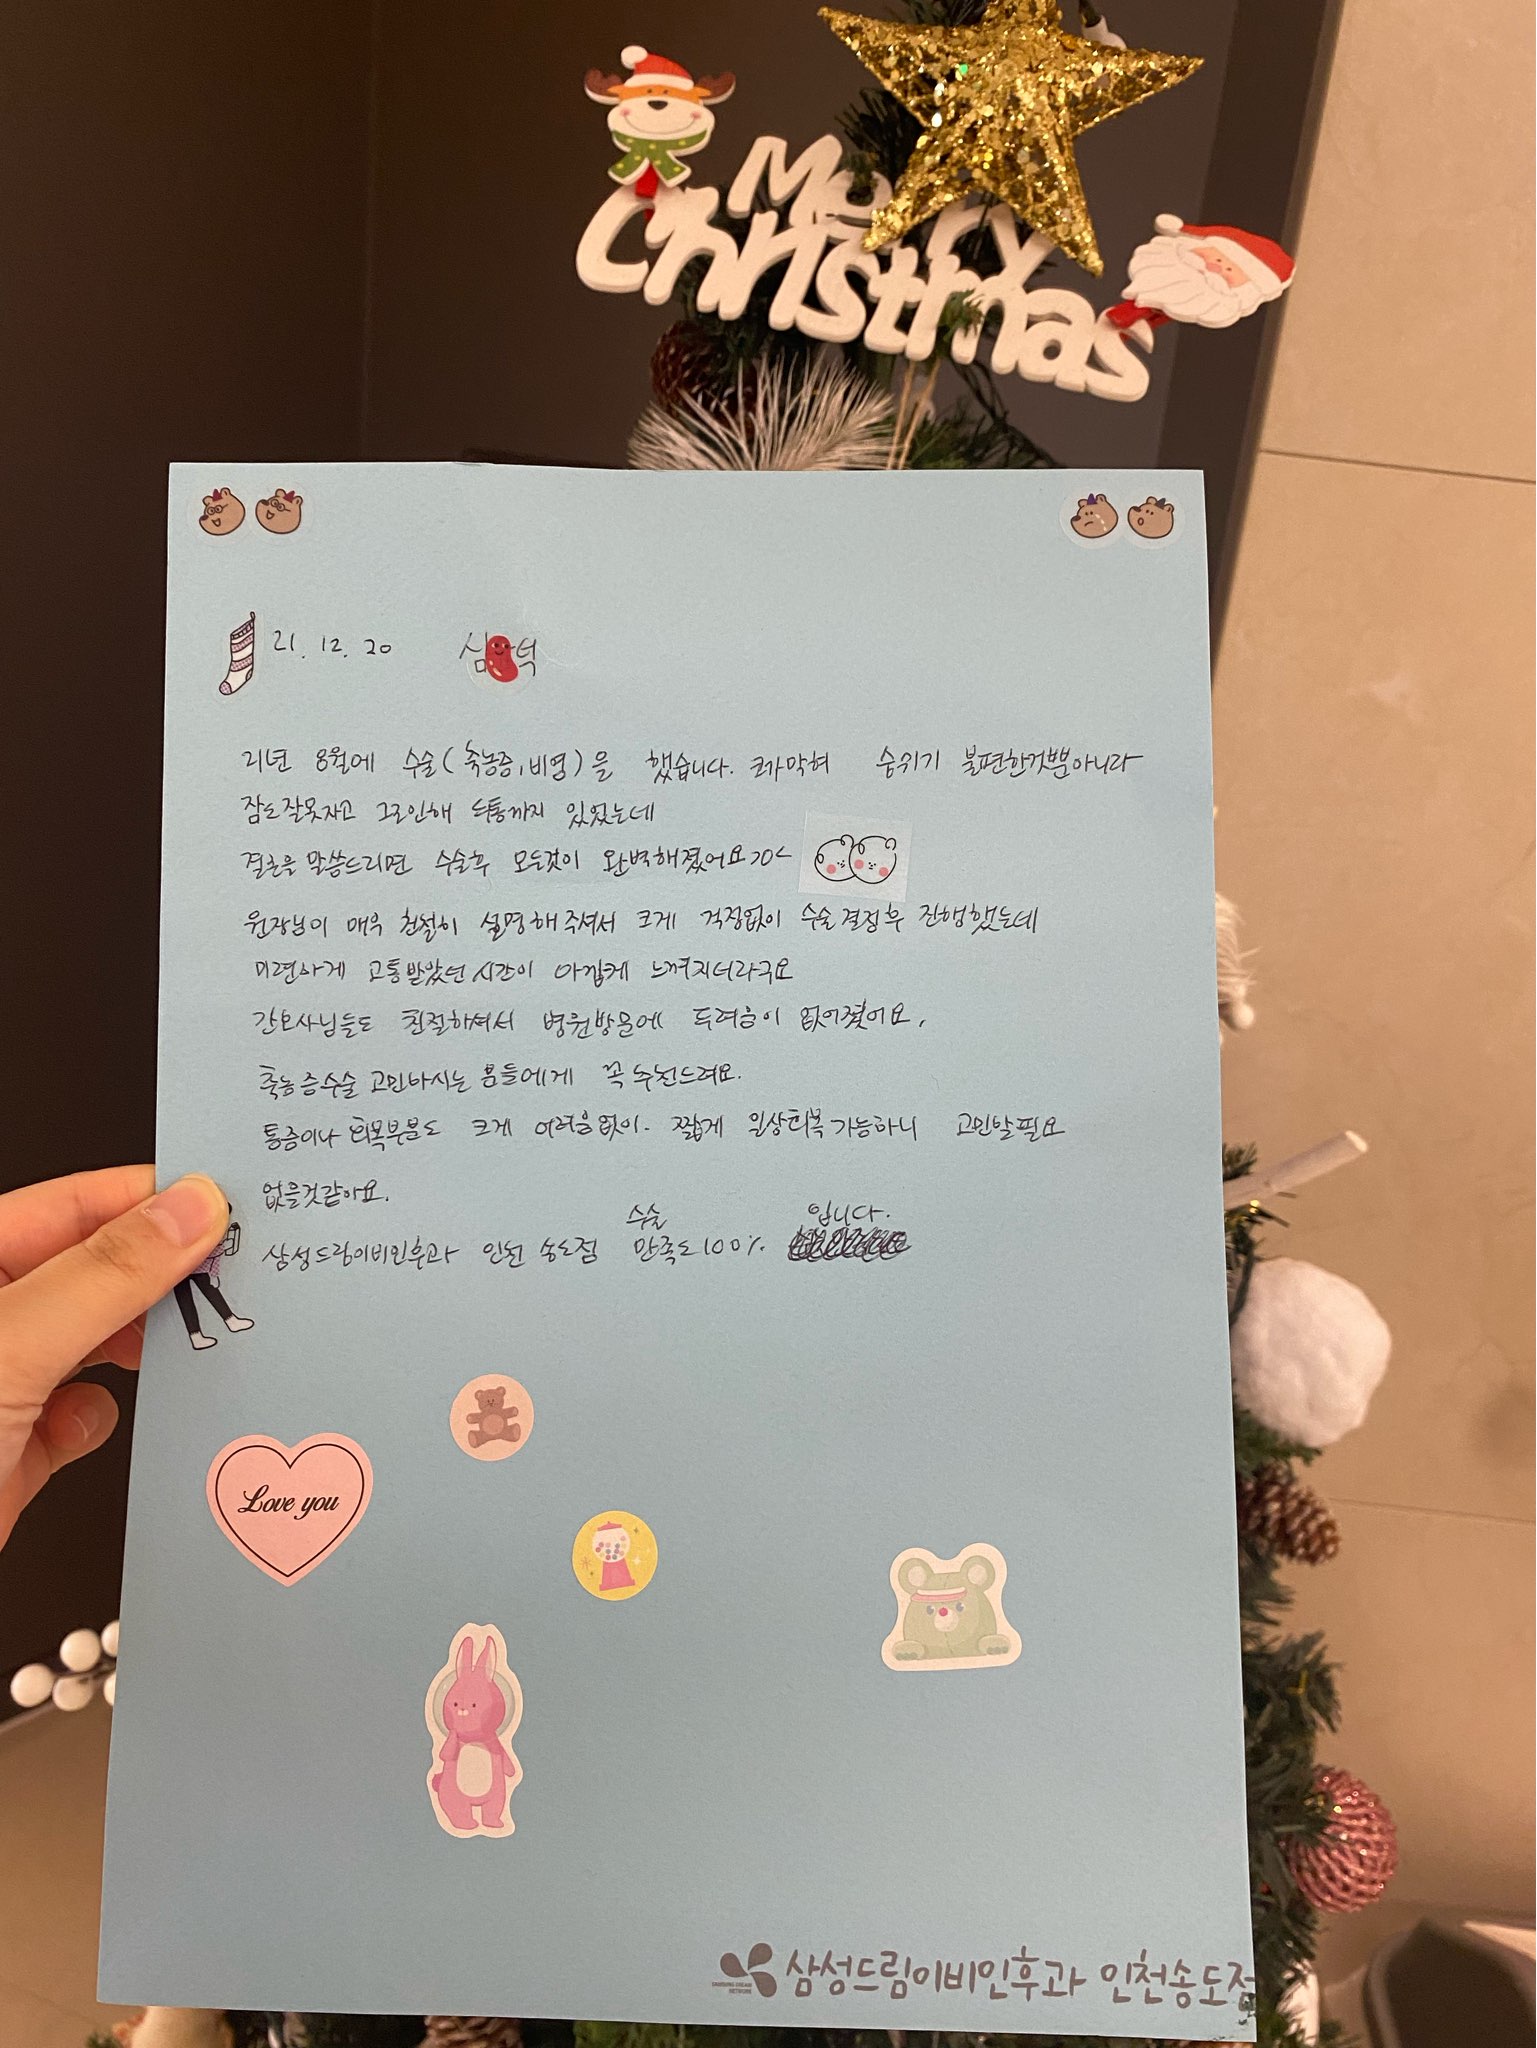 Merry
Christmas
21. 12. 20
21년 8월에 수술(축농증, 비염)을 했습니다. 코가막혀 숨쉬기 불편한것뿐아니라
잠도잘못자고 그로인해 두통까지 있었는데
결론을 말씀드리면 수술후 모든것이 완벽해졌어요>o<
원장님이 매우 친절히 설명해주셔서 크게 걱정없이 수술결정후 진행했는데
미련하게 고통받았던시간이 아깝게 느껴지더라구요
간호사님들도 친절하셔서 병원방문에 두려움이 없어졌어요.
축농증수술 고민하시는 분들에게 꼭 추천드려요.
통증이나 회복부분도 크게 어려움없이. 짧게 일상회복가능하니 고민할필요
없을것같아요.
수술 입니다.
삼성드림이비인후과 인천 송도점 만족도100%.
Love you
SAMSUNG DREAM
NETWORK
삼성드림이비인후과 인천송도점